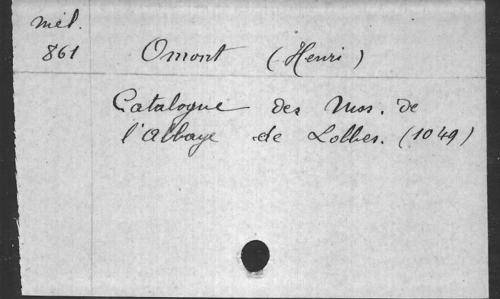 Mél.
861 Omont (Henri)
Catalogue des Mss. de
l'abbaye de Lobbes. (1049)